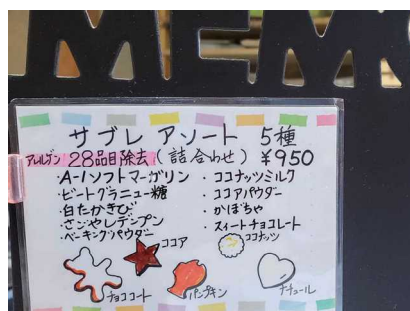 MEM
サブレ アソート 5種
アレルゲン 28品目除去 (詰合わせ) ¥950
・A-1ソフトマーガリン
・ビートグラニュー糖
・白たかきび
・さごやしデンプン
・ベーキングパウダー
・ココナッツミルク
・ココアパウダー
・かぼちゃ
・スイートチョコレート
ココア
ココナッツ
チョココート
パンプキン
ナチュール